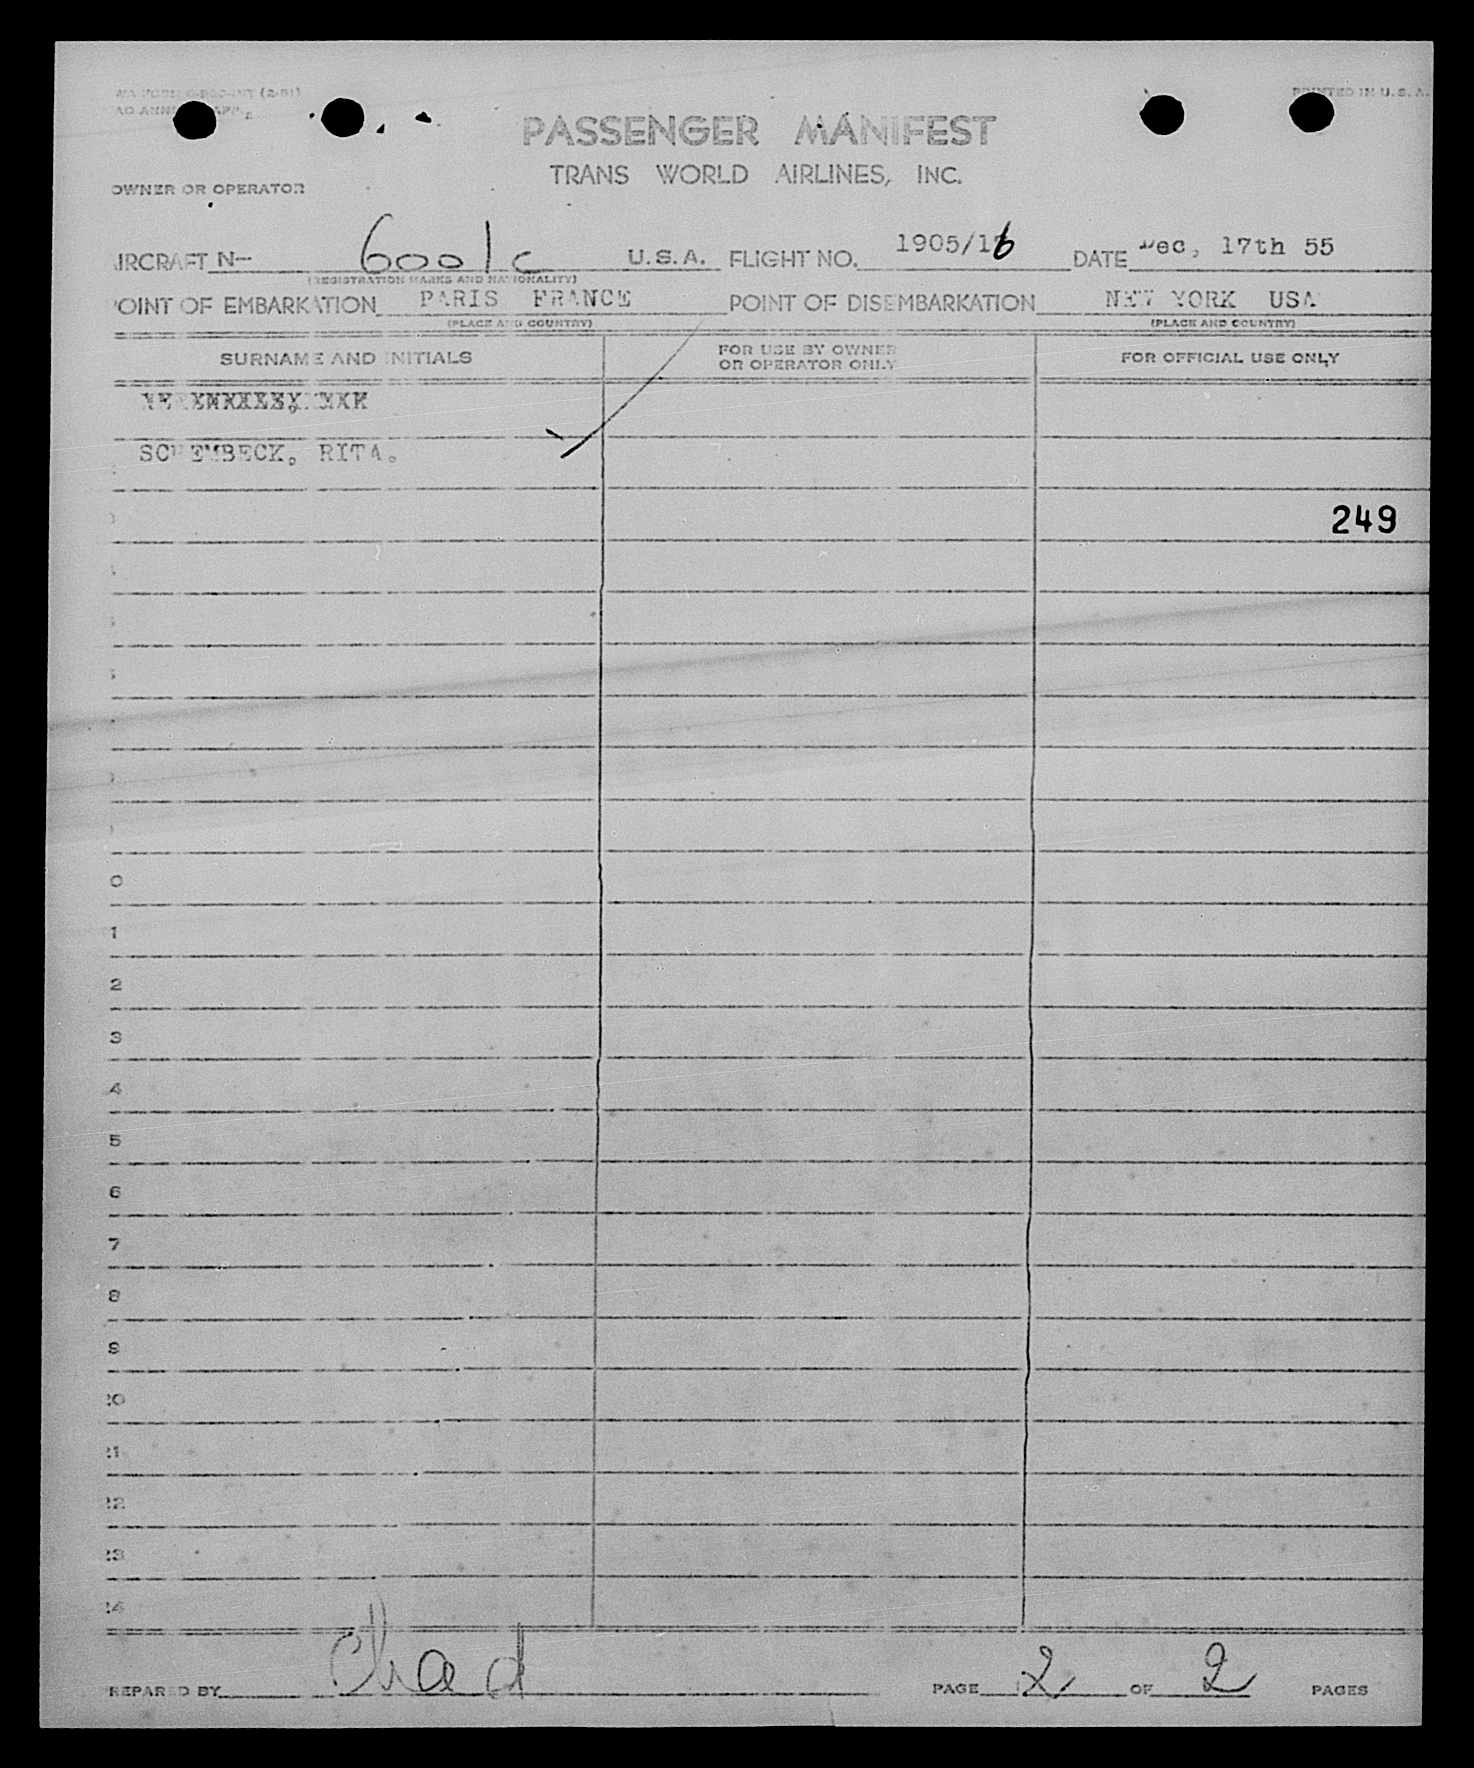 PRINTED IN U.S.A.
PASSENGER MANIFEST
TRANS WORLD AIRLINES, INC.
OWNER OR OPERATOR
IRCRAFT N- 6001C U.S.A. FLIGHT NO. 1905/16 DATE Dec, 17th 55
(REGISTRATION MARKS AND NATIONALITY)
OINT OF EMBARKATION PARIS FRANCE POINT OF DISEMBARKATION NEW YORK USA
(PLACE AND COUNTRY) (PLACE AND COUNTRY)
SURNAME AND INITIALS FOR USE BY OWNER OR OPERATOR ONLY FOR OFFICIAL USE ONLY
SCHEMBECK, RITA.
249
0
1
2
3
4
5
6
7
8
9
20
21
22
23
24
REPARED BY Chad PAGE 2 OF 2 PAGES